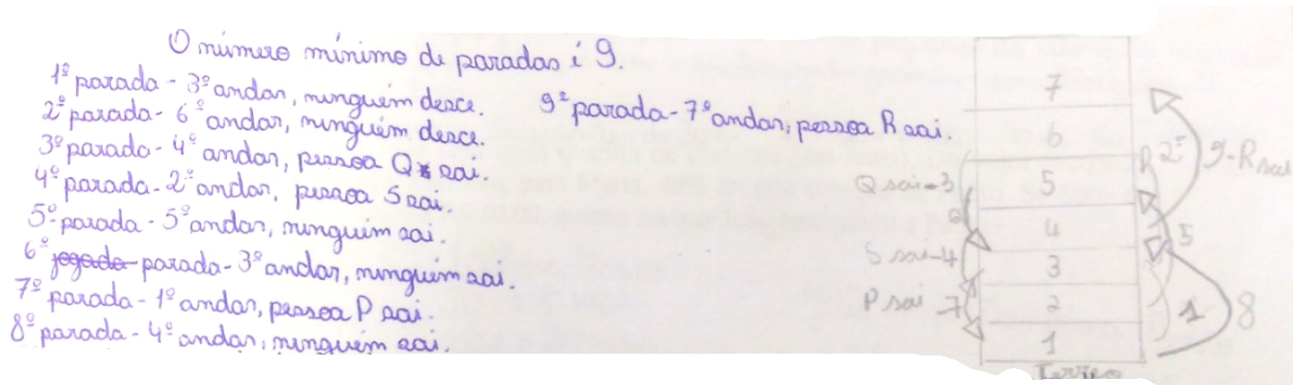 O número mínimo de paradas é 9.
1ª parada - 3º andar, ninguém desce.
2ª parada - 6º andar, ninguém desce.
3ª parada - 4º andar, pessoa Q sai.
4ª parada - 2º andar, pessoa S sai.
5ª parada - 5º andar, ninguém sai.
6ª jogada parada - 3º andar, ninguém sai.
7ª parada - 1º andar, pessoa P sai.
8ª parada - 4º andar, ninguém sai.
9ª parada - 7º andar, pessoa R sai.
7
6
5
4
3
2
1
Terreo
Q sai-3
S sai-4
P sai-7
R 2ª
9-R sai
5
1
8